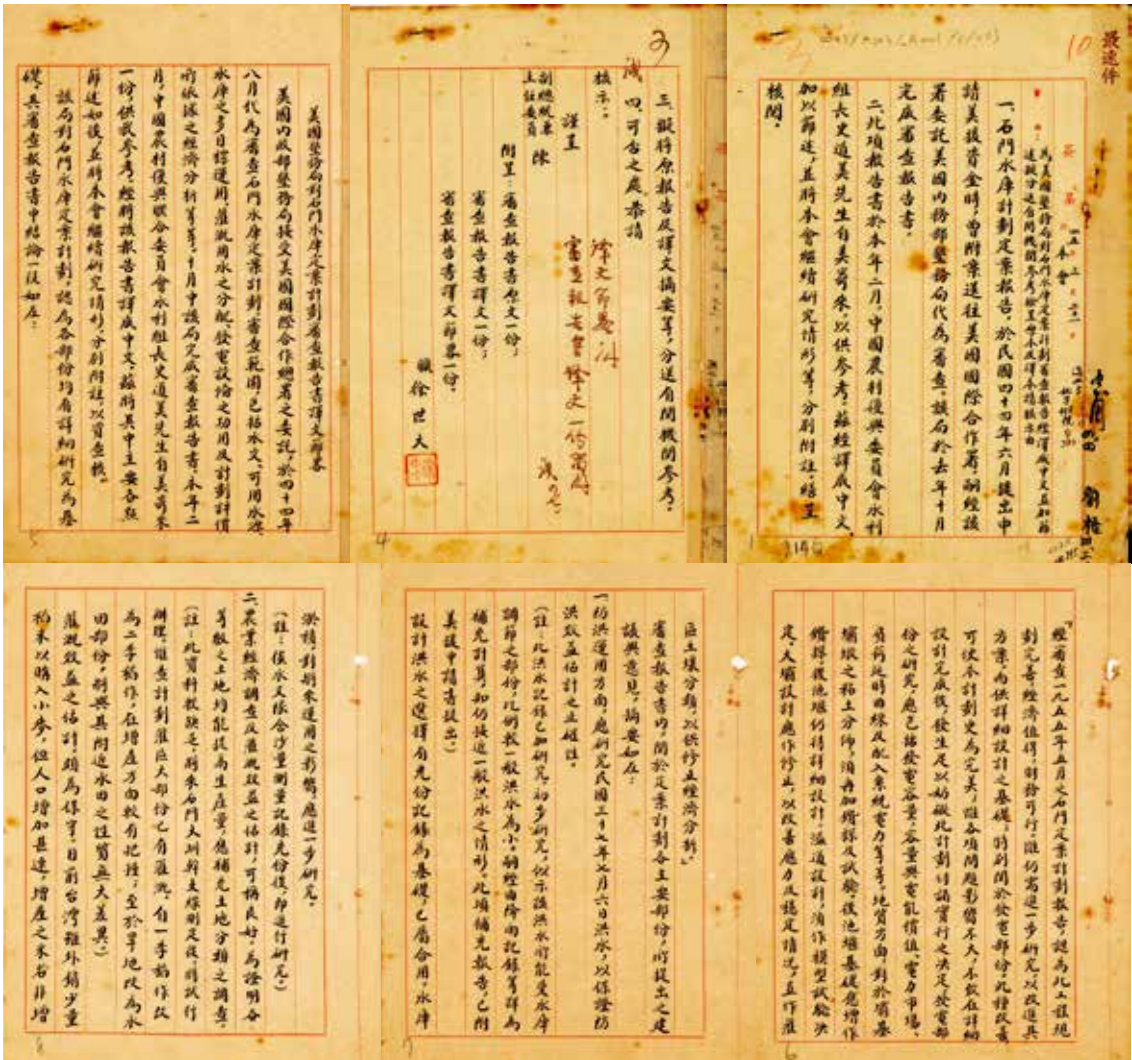 最速件
10
為美國墾務局對石門水庫定案計劃審查報告經譯成中文並加節
一、石門水庫計劃定案報告，於民國四十四年六月提出申
請美援資金時，曾附案送往美國國際合作署，嗣經該
署委託美國內務部墾務局代為審查，該局於去年十月
完成審查報告書。
二、此項報告書於本年二月，中國農村復興委員會水利
組長史道美先生自美寄來，以供參考，茲經譯成中文，
加以節述，並將本會繼續研究情形等，分別附註，繕呈
核閱。
1
3
三、擬將原報告及譯文摘要等，分送有關機關參考。
四、可否之處，恭請
核示。
謹呈
副總統兼
主任委員 陳
附呈：審查報告書原文一份；
審查報告書譯文一份；
審查報告書譯文節畧一份。
職 徐世大
4
美國墾務局對石門水庫定案計劃審查報告書譯文節畧
美國內政部墾務局接受美國國際合作總署之委託，於四十四年
八月代為審查石門水庫定案計劃，審查範圍，包括水文、可用水源、
水庫之多目標運用，灌溉用水之分配，發電設備之功用及計劃評價
所依據之經濟分析等等，十月中該局完成審查報告書，本年二
月，中國農村復興聯合委員會水利組長史道美先生自美寄來
一份，供我參考，經將該報告書譯成中文，茲將其中主要各點
節述如後，並將本會繼續研究情形，分別附註，以資查核。
該局對石門水庫定案計劃，認為各部份均有詳細研究為基
礎，其審查報告書中結論一段如左：
5
「經審查一九五五年五月之石門定案計劃報告，認為此工程規
劃完善，經濟值得，財務可行，雖仍需進一步研究，以改進其
方案，而供詳細設計之基礎，特別關於發電部份，此種改善
可使本計劃更為完美，惟各項問題影響不大，不致在詳細
設計完成後，發生足以妨礙此計劃付諸實行之決定，發電部
份之研究，應包括發電容量，容量與電能價值，電力市場，
負荷延時曲線及配入系統電力等等，地質方面，對於壩基
壩墩之粘土分佈，須再加鑽探及試驗，後池堰基礎應增作
鑽探，後池堰仍待詳細設計，溢道設計，須作模型試驗決
定，大壩設計應作修正，以改善應力及穩定情況，並作灌
6
區土壤分類，以供修正經濟分析。」
審查報告書內，關於定案計劃各主要部份，所提出之建
議與意見，摘要如左：
一、防洪運用方面，應研究民國三十七年七月六日洪水，以保證防
洪效益估計之正確性。
（註：此洪水記錄已加研究，初步研究，似示該洪水所能受水庫
調節之部份，比例較一般洪水為小，嗣經由降雨記錄等詳為
補充計算，知仍接近一般洪水之情形，此項補充報告，已附
美援申請書提出。）
設計洪水之選擇有充份記錄為基礎，已屬合用，水庫
7
淤積，對將來運用之影響，應進一步研究。
（註：俟水文隊含沙量測量記錄充份後，即進行研究。）
二、農業經濟調查及灌溉效益之估計，可稱良好，為證明各
等級之土地均能提高生產量，應補充土地分類之調查。
（註：此資料較缺乏，將來石門大圳幹支線測定後，將試行
辦理，惟查計劃灌區大部份已有灌溉，自一季稻作改
為二季稻作，在增產方面較有把握；至於旱地改為水
田部份，則與其附近水田之性質無大差異。）
灌溉效益之估計，頗為保守，目前台灣雖外銷少量
稻米以購入小麥，但人口增加甚速，增產之米若非增
8